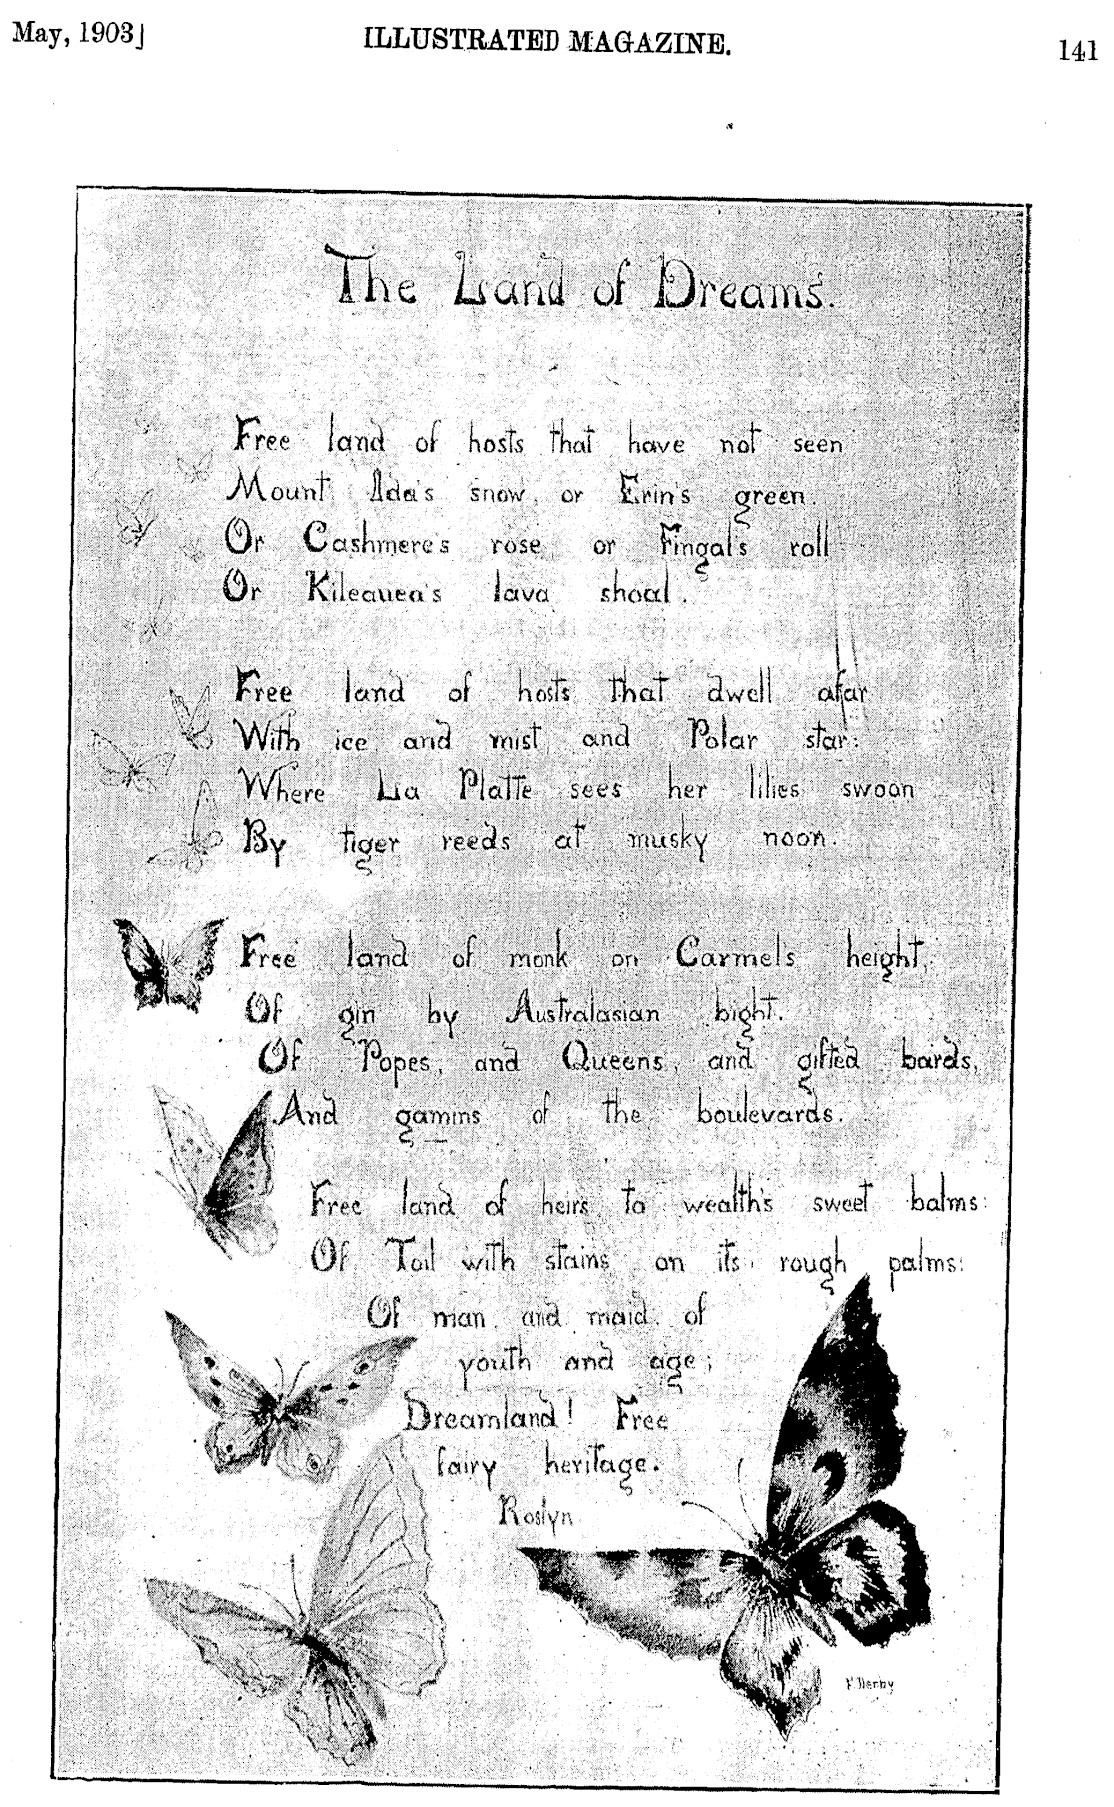 May, 1903]
ILLUSTRATED MAGAZINE.
141
The Land of Dreams.
Free land of hosts that have not seen
Mount Ida's snow, or Erin's green.
Or Cashmere's rose or Fingal's roll
Or Kileauea's lava shoal.
Free land of hosts that dwell afar
With ice and mist and Polar star:
Where La Platte sees her lilies swoon
By tiger reeds at musky noon.
Free land of monk on Carmel's height,
Of gin by Australasian bight.
Of Popes, and Queens, and gifted bards,
And gamins of the boulevards.
Free land of heirs to wealth's sweet balms:
Of Toil with stains on its rough palms:
Of man and maid, of
youth and age;
Dreamland! Free
fairy heritage.
Roslyn
F. Derby